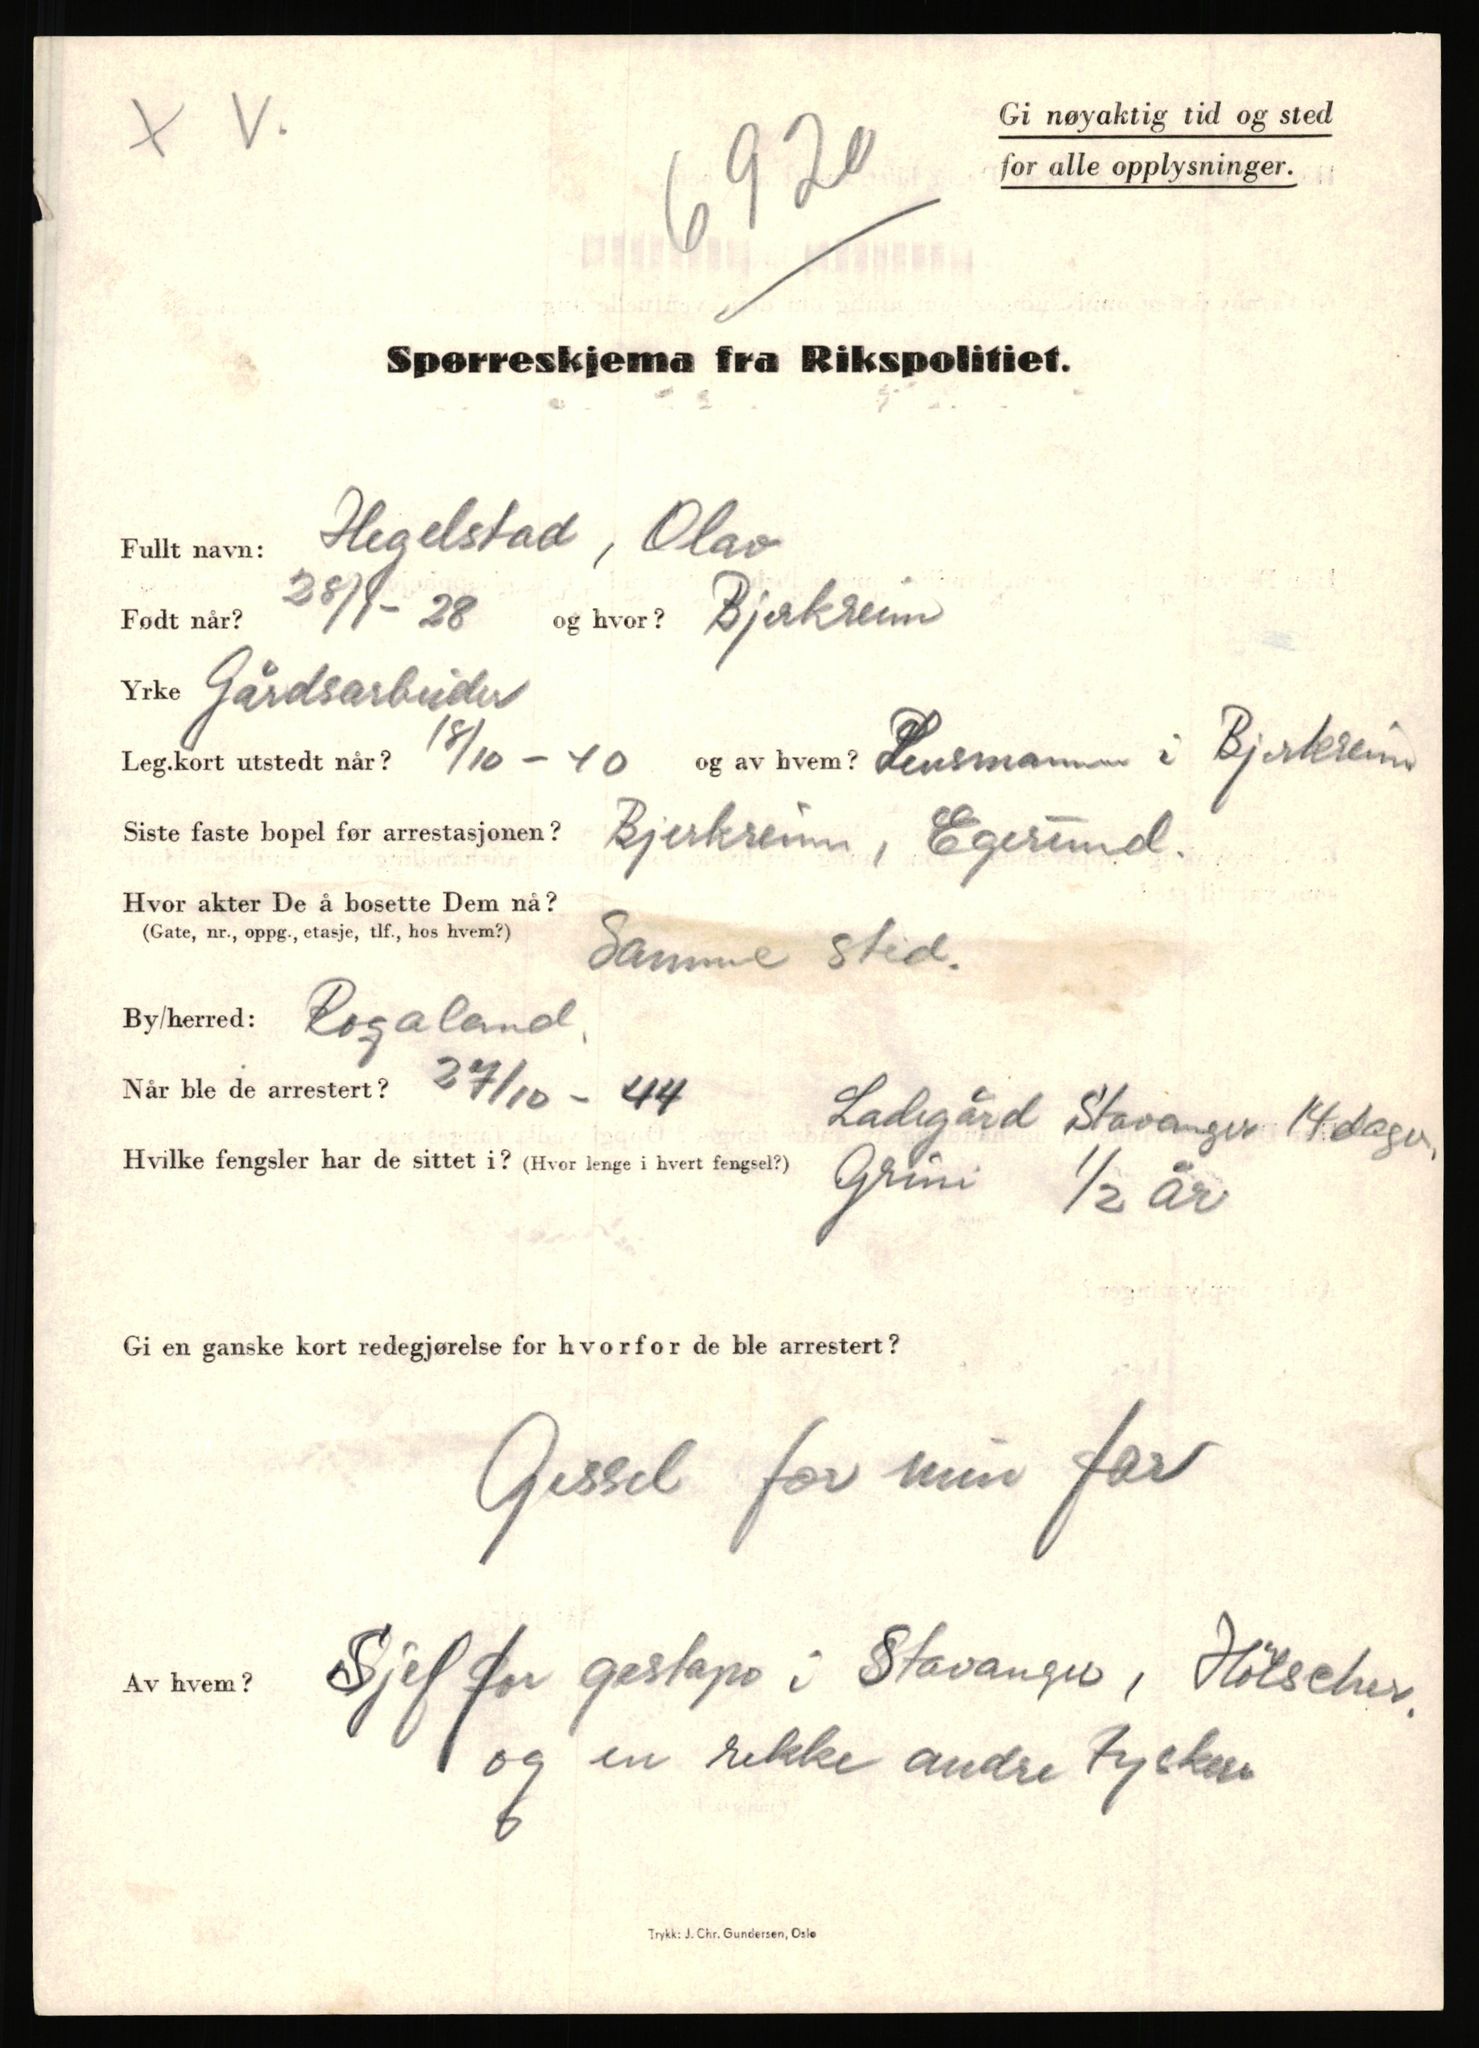 X V.
6920
Gi nøyaktig tid og sted
for alle opplysninger.
Spørreskjema fra Rikspolitiet.
Fullt navn: Hegelstad, Olav
Født når? 28/1-28 og hvor? Bjerkreim
Yrke Gårdsarbeider
Leg.kort utstedt når? 18/10-40 og av hvem? Lensmannen i Bjerkreim
Siste faste bopel før arrestasjonen? Bjerkreim, Egersund.
Hvor akter De å bosette Dem nå?
(Gate, nr., oppg., etasje, tlf., hos hvem?) Samme sted.
By/herred: Rogaland.
Når ble de arrestert? 27/10-44
Hvilke fengsler har de sittet i? (Hvor lenge i hvert fengsel?) Ladegård Stavanger 14 dager,
Grini 1/2 år
Gi en ganske kort redegjørelse for hvorfor de ble arrestert?
Gissel for min far
Av hvem? Sjef for gestapo i Stavanger, Hölscher.
og en rekke andre tyskere
Trykk: J. Chr. Gundersen, Oslo